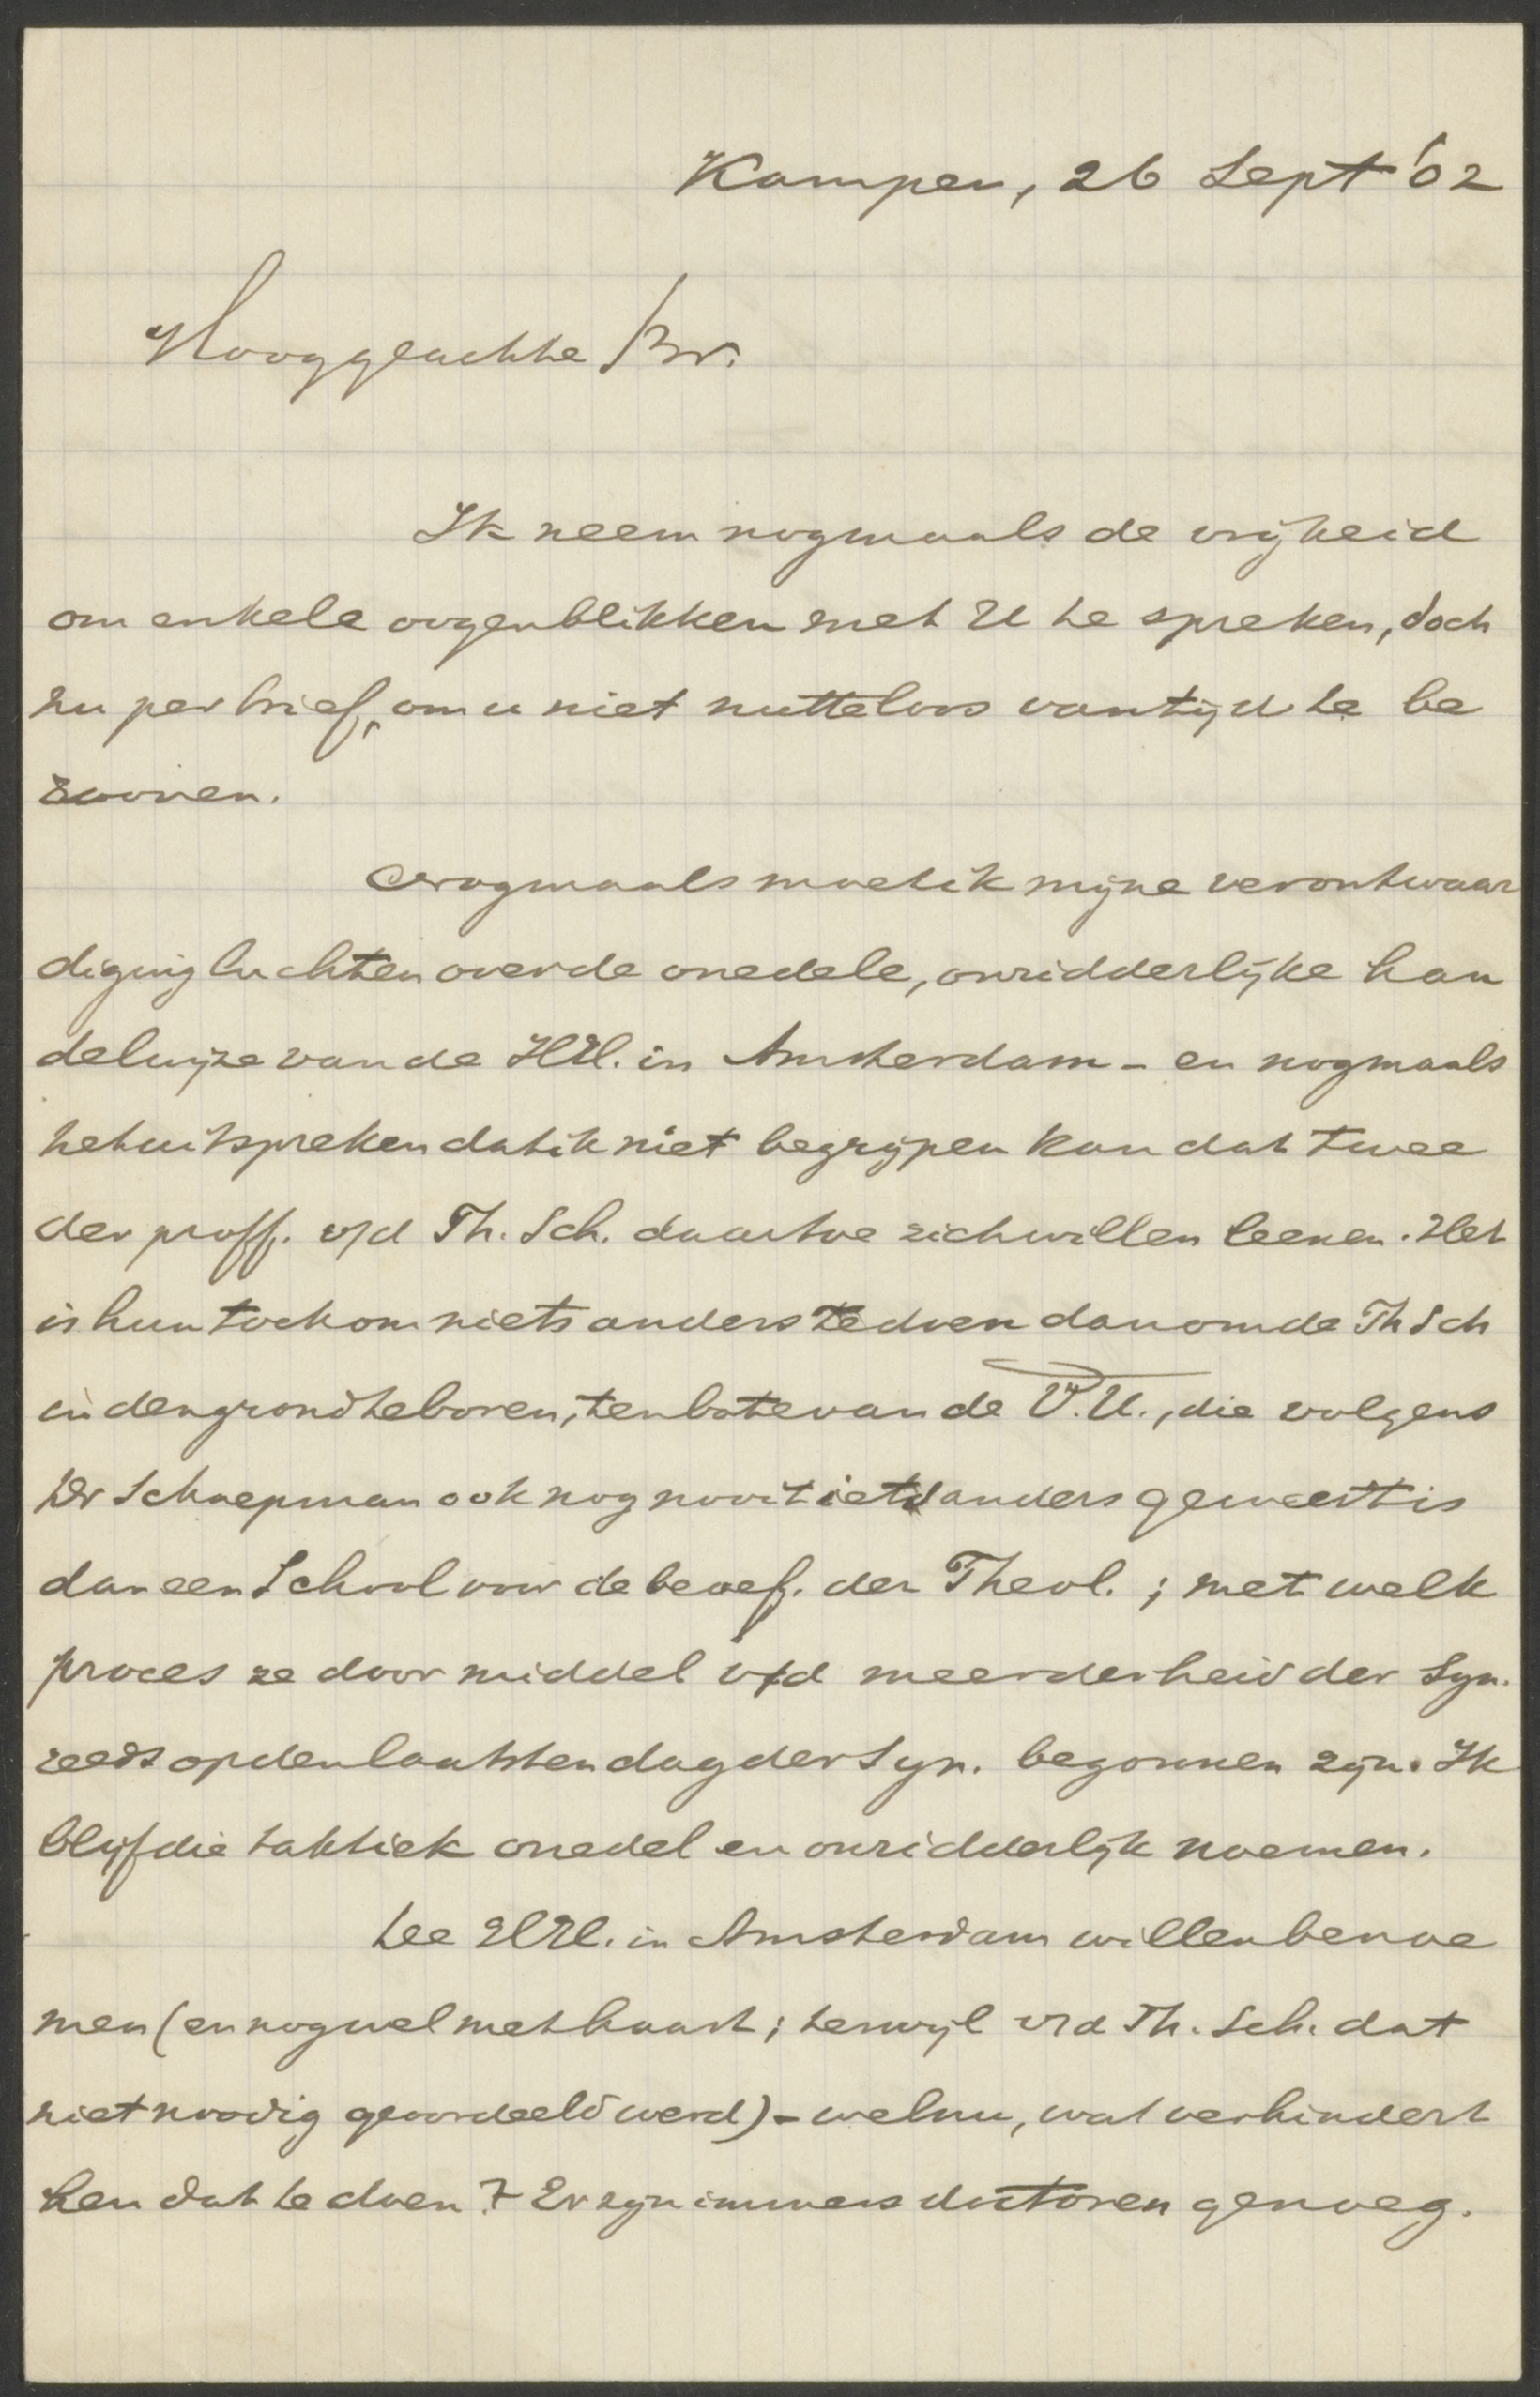 Kampen, 26 Sept '02
Hooggeachte Br.
Ik neem nogmaals de vrijheid
om enkele oogenblikken met U te spreken, doch
nu per brief, om u niet nutteloos van tijd te be
rooven.
Nogmaals moet ik mijne verontwaar
diging luchten over de onedele, onridderlijke han
delwijze van de HH. in Amsterdam - en nogmaals
het uitspreken dat ik niet begrijpen kan dat twee
der proff. v/d Th. Sch. daartoe zich willen leenen. Het
is hun toch om niets anders te doen dan om de Th Sch
in den grond te boren, ten bate van de V.U., die volgens
Dr Schaepman ook nog nooit iets anders geweest is
dan een School voor de beoef. der Theol. ; met welk
proces ze door middel v/d meerderheid der Syn.
reeds op den laatsten dag der Syn. begonnen zijn. Ik
blijf die taktiek onedel en onridderlijk noemen.
De HH. in Amsterdam willen benoe
men (en nog wel met haast; terwijl v/d Th. Sch. dat
niet noodig geoordeeld werd) - welnu, wat verhindert
hen dat te doen? Er zijn immers doctoren genoeg.